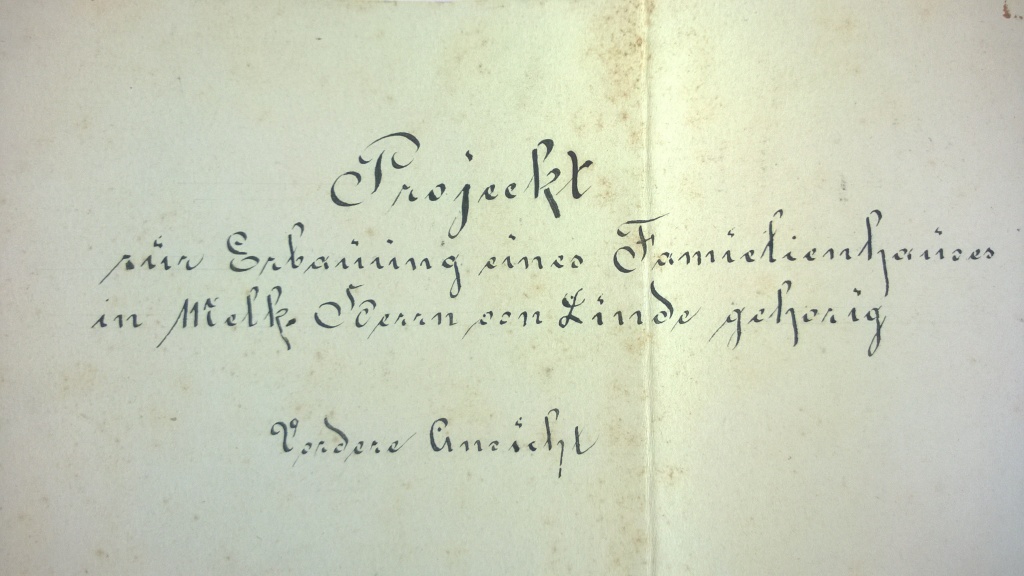 Projeckt
zür Erbaüüng eines Famielienhaüses
in Melk. Herrn von Linde gehörig
Vordere Ansicht